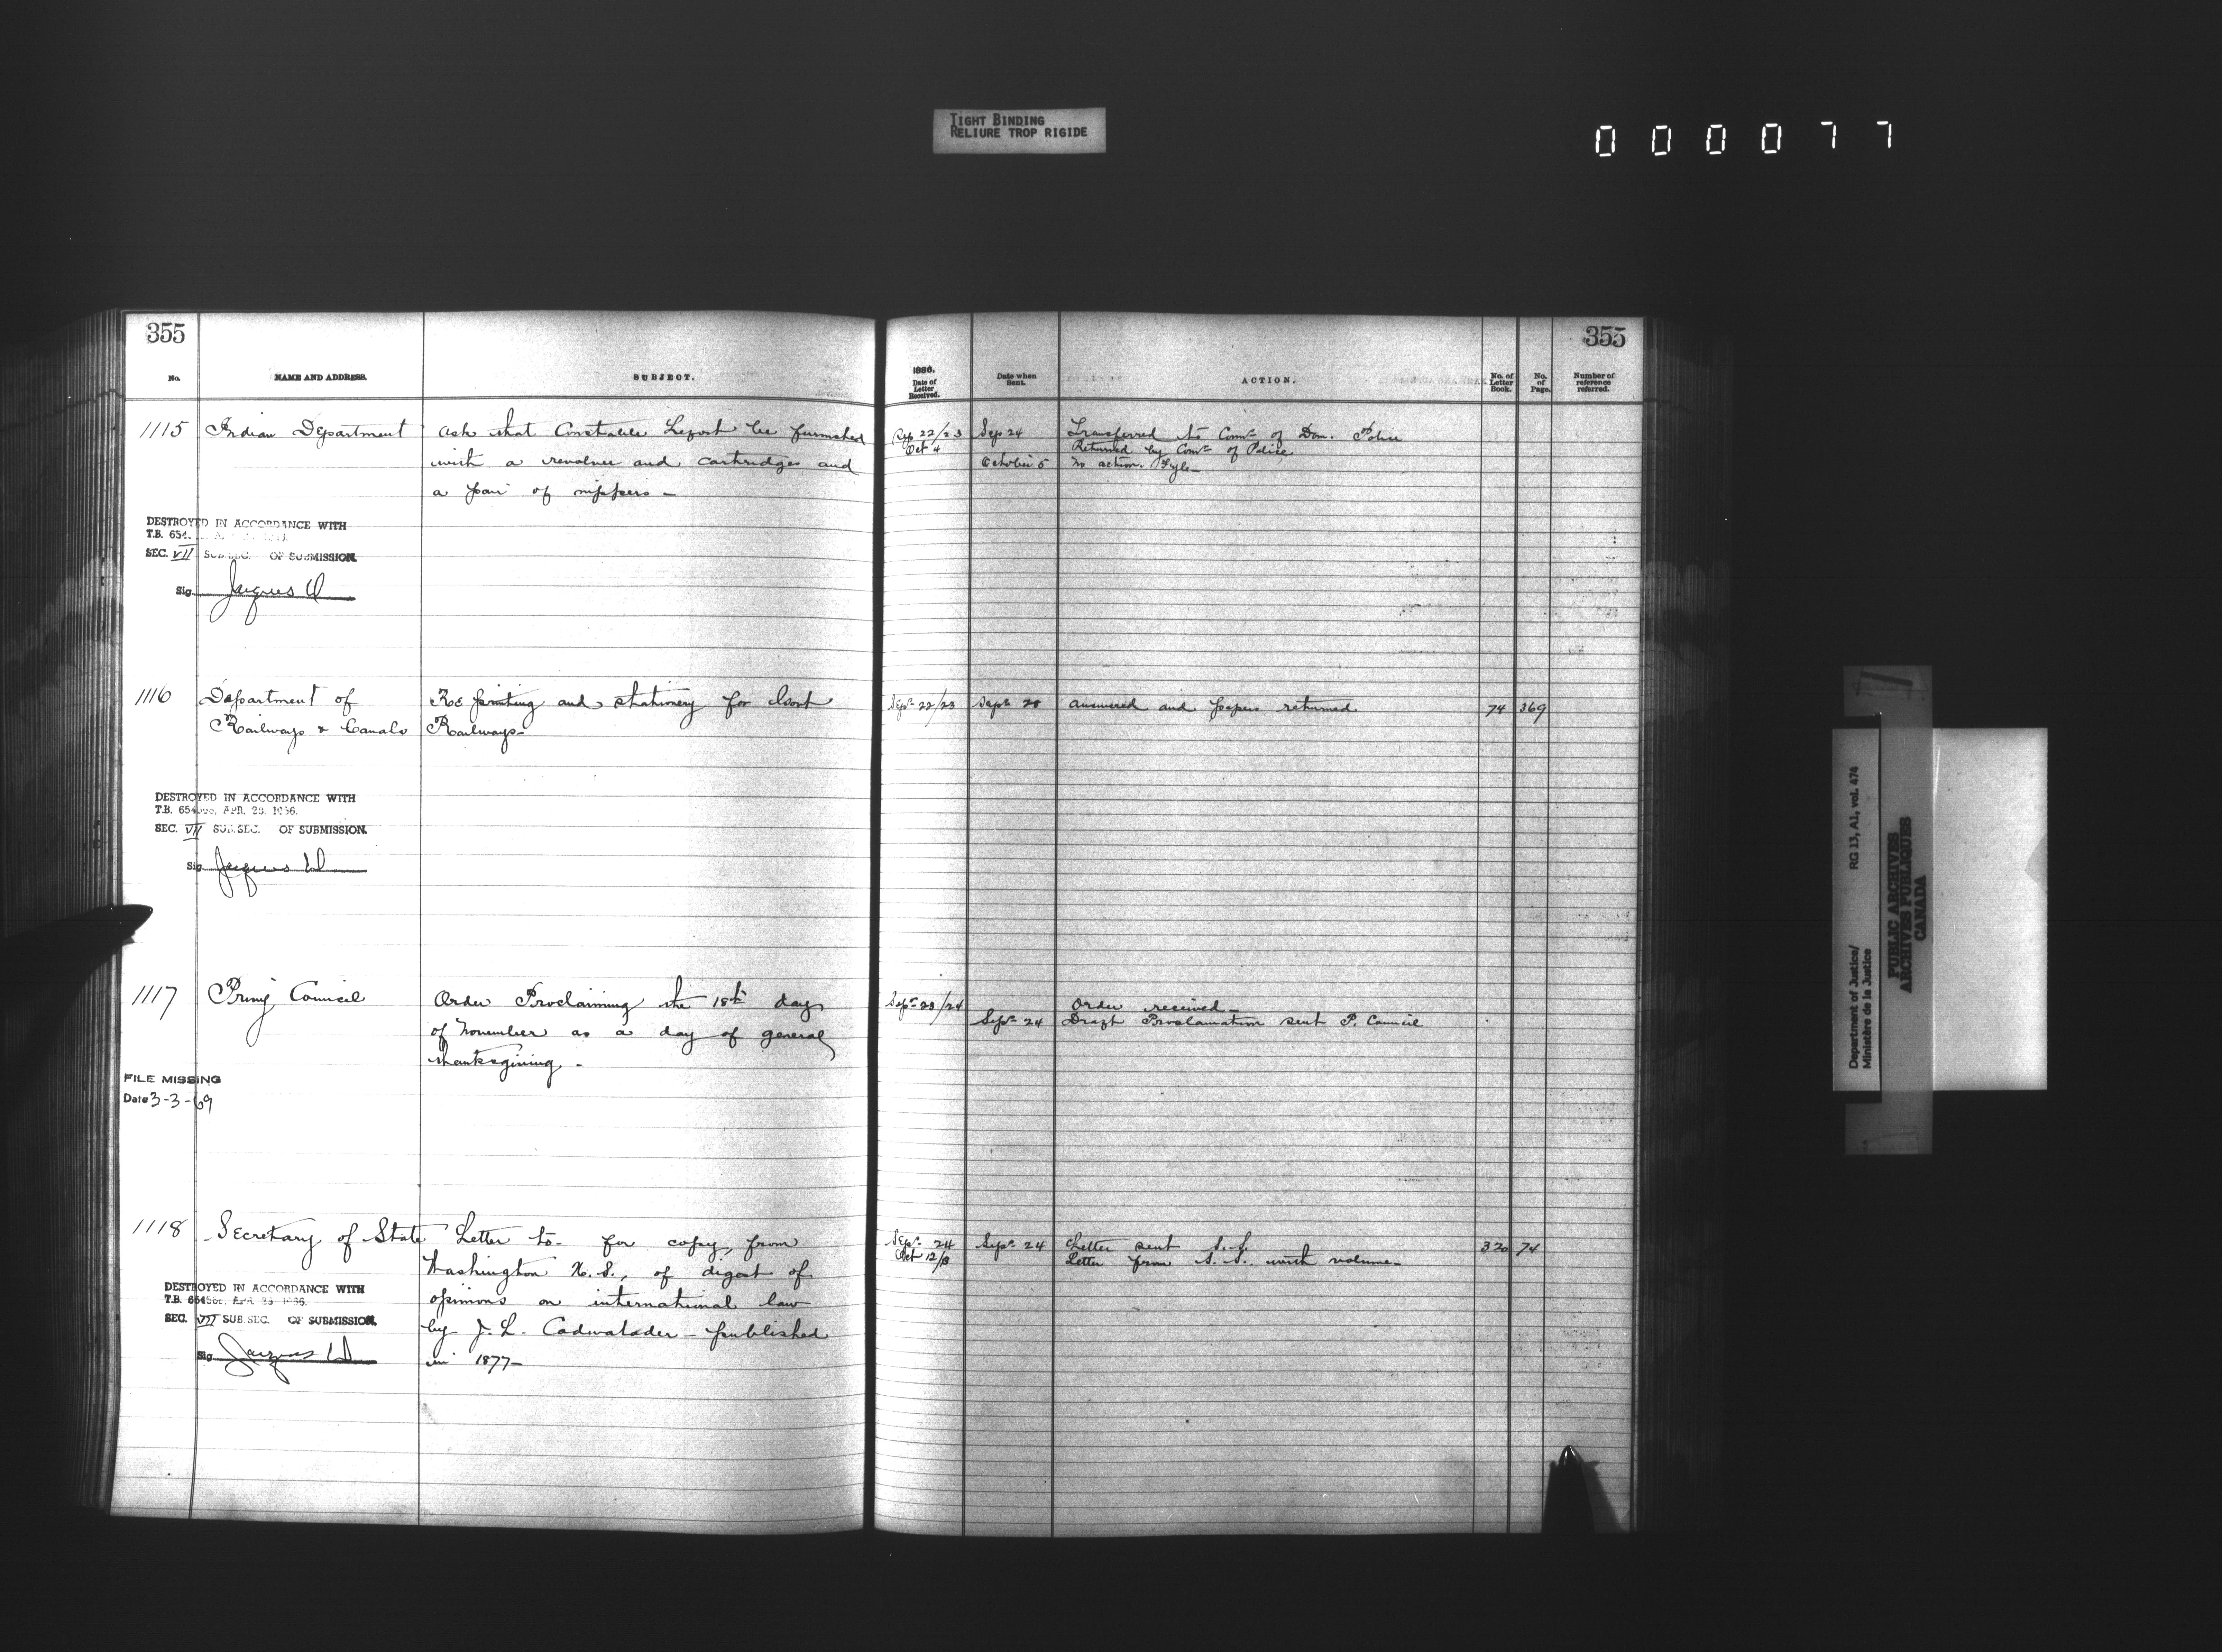 TIGHT BINDING
RELIURE TROP RIGIDE
000077
355
355
No.
NAME AND ADDRESS.
SUBJECT.
1886.
Date of Letter Received.
Date when Sent.
ACTION.
No. of Letter Book.
No. of Page.
Number of reference referred.
1115 Indian Department
Ask that Constable be furnished
with a revolver and cartridges and
a pair of nippers -
Sep 22/23 Sep 24 Transferred to Comr of Dom. Police
Oct 4 Returned by Comr of Police
October 5 No action. Fyle
DESTROYED IN ACCORDANCE WITH
T.B. 654
SEC. VII SUB.SEC. OF SUBMISSION.
Sig. Jacques
1116 Department of
Railways & Canals
Re printing and stationery for Govt
Railways -
Sepr 22/23 Sepr 28 Answered and papers returned 74 369
DESTROYED IN ACCORDANCE WITH
T.B. 654566, APR. 23, 1966.
SEC. VII SUB.SEC. OF SUBMISSION.
Sig. Jacques
1117 Privy Council
Order Proclaiming the 18th day
of November as a day of general
thanksgiving -
Sepr 23/24 Order received -
Sepr 24 Draft Proclamation sent P. Council
FILE MISSING
Date 3-3-69
1118 Secretary of State
Letter to - for copy, from
Washington U.S., of digest of
opinions on international law
by J. L. Cadwalader - published
in 1877 -
Sepr 24 Sepr 24 Letter sent S.S. 320 74
Oct 12/13 Letter from S.S. with volume -
DESTROYED IN ACCORDANCE WITH
T.B. 654566, APR 23 1966.
SEC. VII SUB.SEC. OF SUBMISSION.
Sig. Jacques
Department of Justice/ RG 13, A1, vol. 474
Ministère de la Justice
PUBLIC ARCHIVES
ARCHIVES PUBLIQUES
CANADA